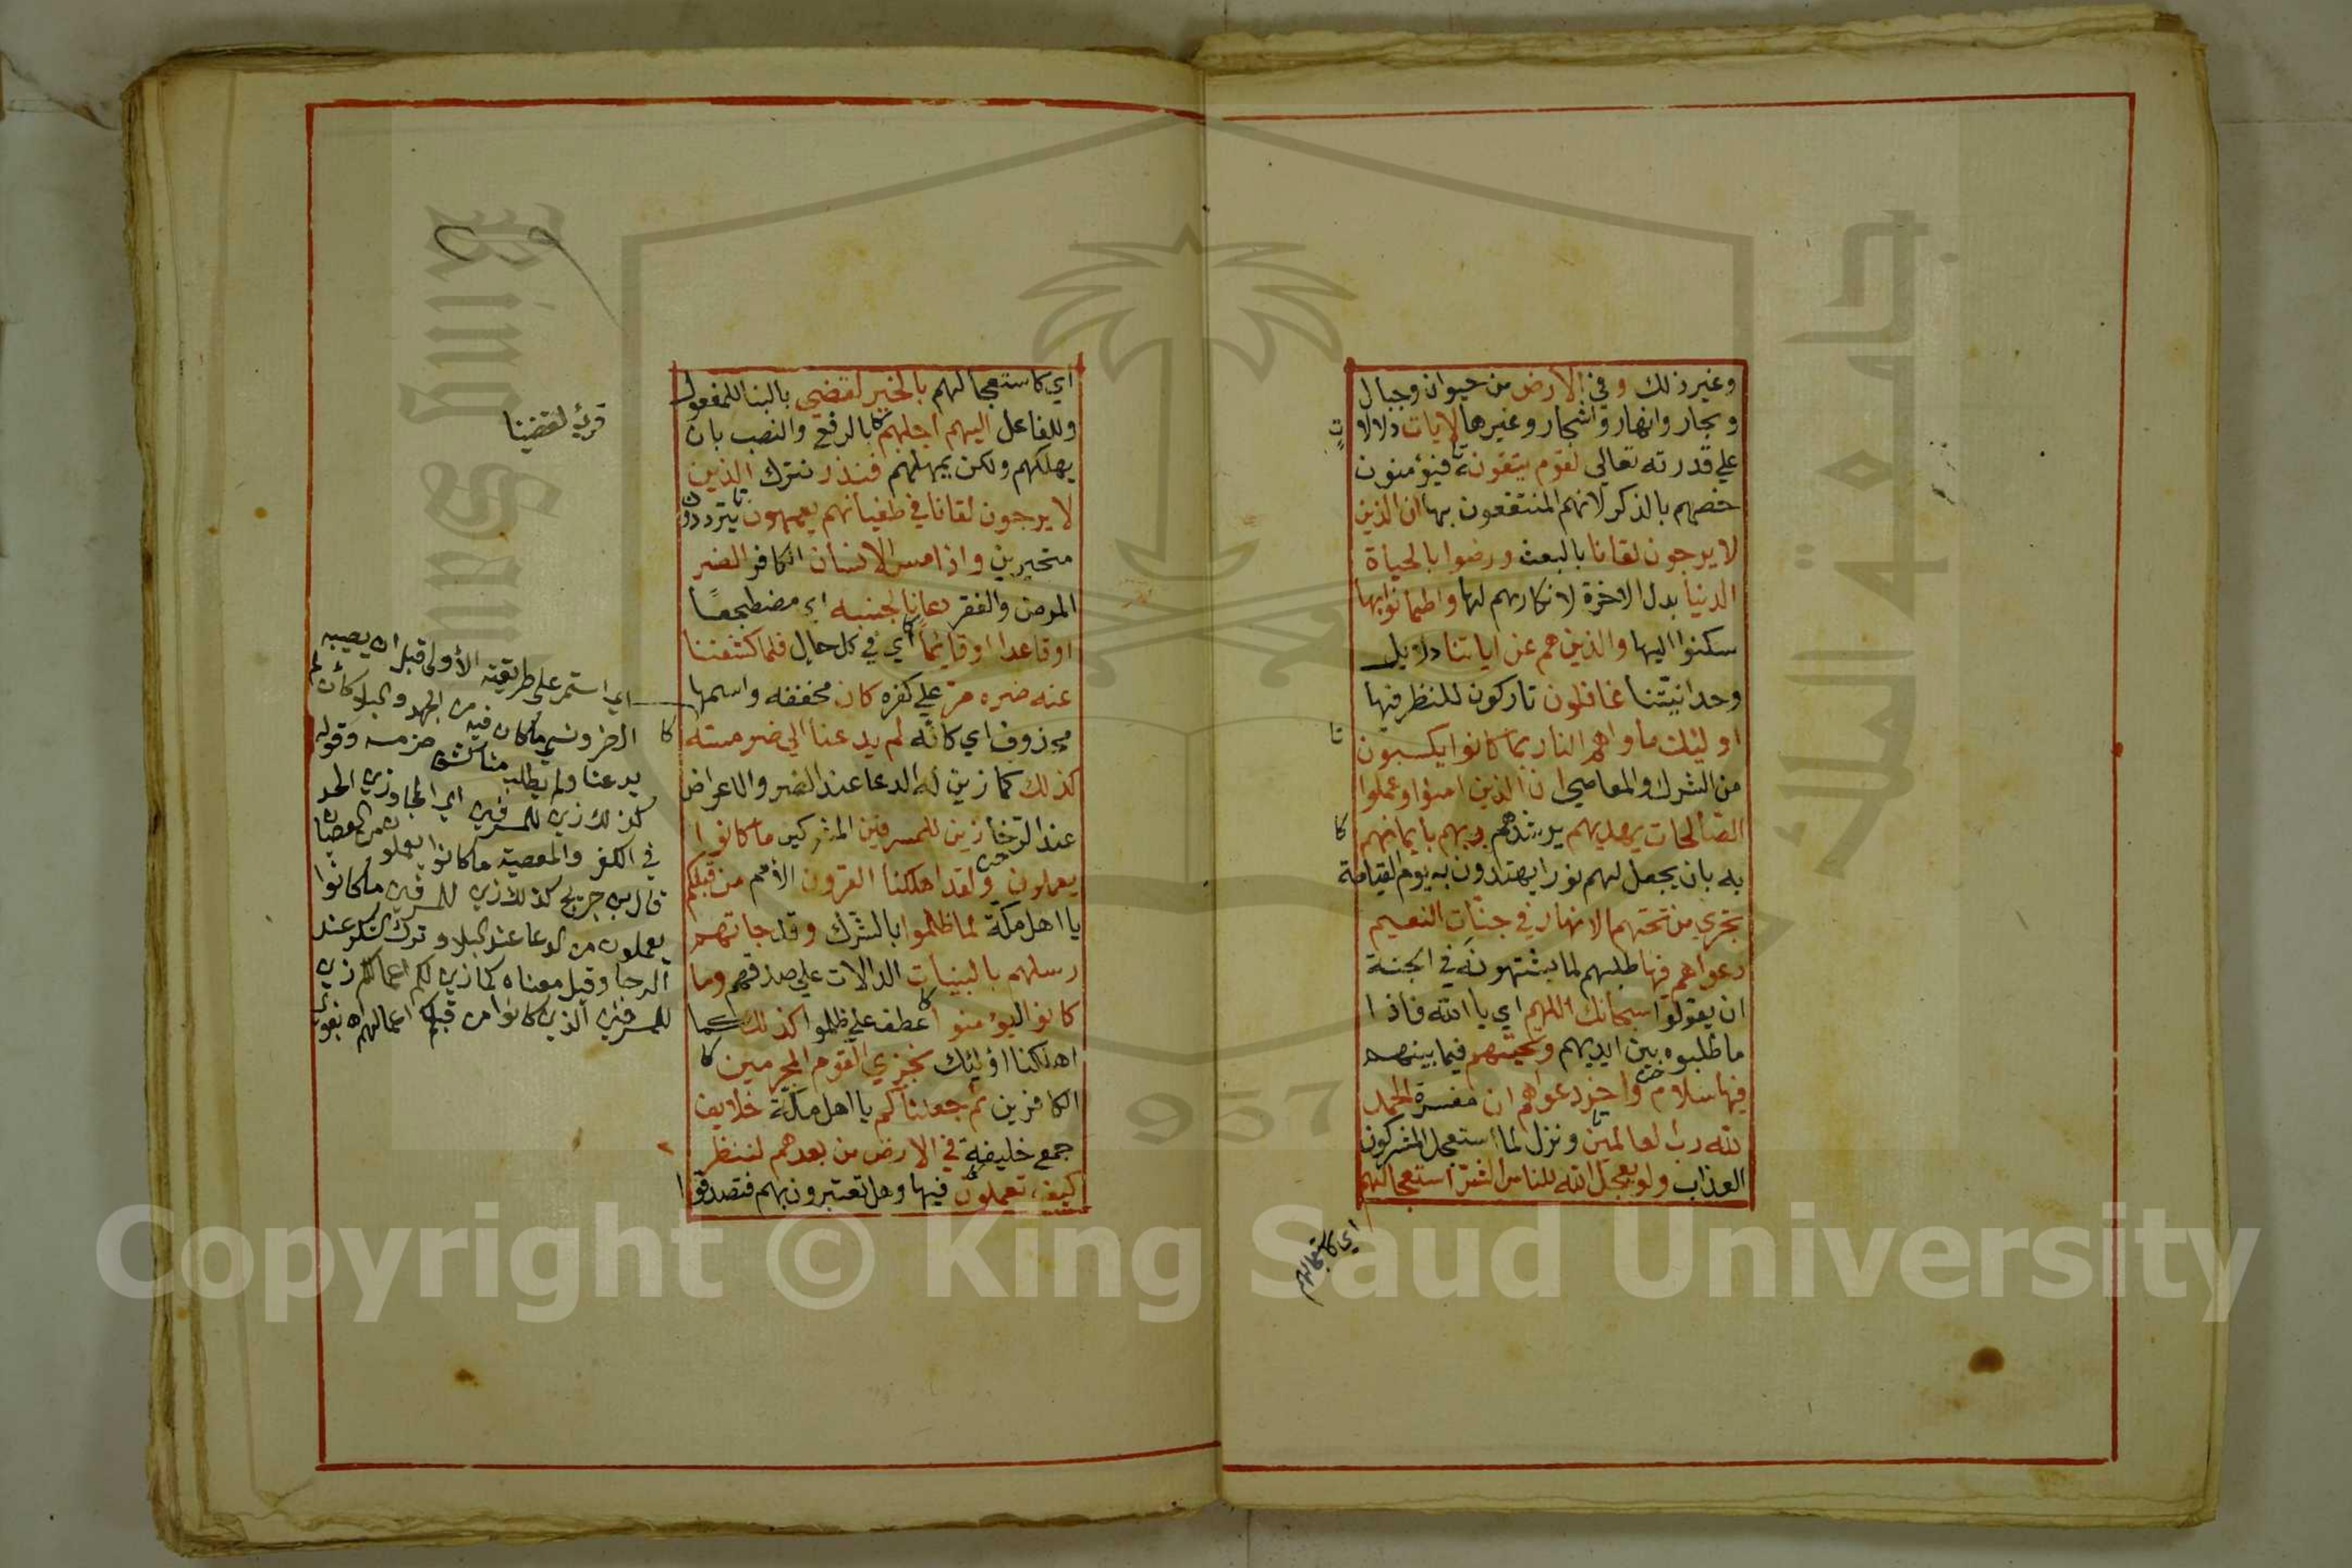 وغير ذلك وفي الارض من حيوان وجبال
وبحار وانهار واشجار وغيرها لايات دلالات
علي قدرته تعالي لقوم يتقون فيؤمنون
خصهم بالذكر لانهم المنتفعون بها ان الذين
لا يرجون لقانا بالبعث ورضوا بالحياة
الدنيا بدل الاخرة لانكارهم لها واطمانوا بها
سكنوا اليها والذين هم عن اياتنا دلايل
وحدانيّتنا غافلون تاركون للنظر فيها
اوليئك ماواهم النار بما كانوا يكسبون
من الشرك والمعاصي ان الذين امنوا وعملوا
الصّالحات يهديهم يرشدهم ربهم بايمانهم
به بان يجعل لهم نورا يهتدون به يوم القيامة
تجري من تحتهم الانهار في جنّات النعيم
دعواهم فيها طلبهم لما يشتهونه في الجنة
ان يقولوا سبحانك اللهم اي يا الله فاذا
ما طلبوه بين ايديهم وتحيتهم فيما بينهم
فيها سلام واخر دعواهم ان مفسرة الحمد
لله رب العالمين ونزل لما استعجل المشركون
العذاب ولو يعجل الله للناس الشرّ استعجالهم
اي كاستعجالهم
اي كاستعجالهم بالخير لقضي بالبنا للمفعول
وللفاعل اليهم اجلهم بالرفع والنصب بان
يهلكهم ولكن يمهلهم فنذر نترك الذين
لا يرجون لقانا في طغيانهم يعمهون يترددون
متحيرين واذا مس الانسان الكافر الضر
المرض والفقر دعانا لجنبه اي مضطجعًا
او قاعدا او قايمًا اي في كل حال فلما كشفنا
عنه ضره مرّ علي كفره كان مخففه واسمها
محذوف اي كانّه لم يدعنا الي ضر مسته
كذلك كما زين له الدعا عند الضر والاعراض
عند الرّخا زين للمسرفين المشركين ما كانوا
يعملون ولقد اهلكنا القرون الأمم من قبلكم
يا اهل مكّة لما ظلموا بالشّرك وقد جاتهم
رسلهم بالبينات الدالات علي صدقهم وما
كانوا ليؤمنوا عطف علي ظلموا كذلك كما
اهلكنا اوليئك نجزي القوم المجرمين
الكافرين ثم جعلناكم يا اهل مكّة خلايف
جمع خليفة في الارض من بعدهم لننظر
كيف تعملون فيها وهل تعتبرون بهم فتصدقوا
قرئ لقضينا
اي استمر على طريقته الأولى قبل ان يصيبه
الضر ونسي ما كان فيه من الجهد والبلا كأن لم
يدعنا ولم يطلب منا كشف ضر مسه وقوله
كذلك زين للمسرفين اي المجاوزين الحد
في الكفر والمعصية ما كانوا يعملون من العصيان
قال ابن جريج كذلك زين للمسرفين ما كانوا
يعملون من الدعا عند البلا وترك الشكر عند
الرخا وقيل معناه كما زين لكم اعمالكم زين
للمسرفين الذين كانوا من قبلكم اعمالهم اه
King Saud
جامعة الملك
1957
Copyright © King Saud University